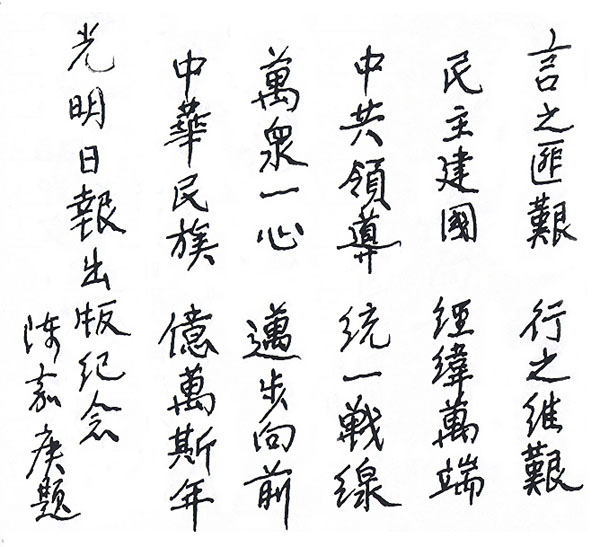 言之匪艱 行之維艱
民主建國 經緯萬端
中共領導 统一戰線
萬眾一心 邁步向前
中華民族 億萬斯年
光明日報出版纪念
陈嘉庚題